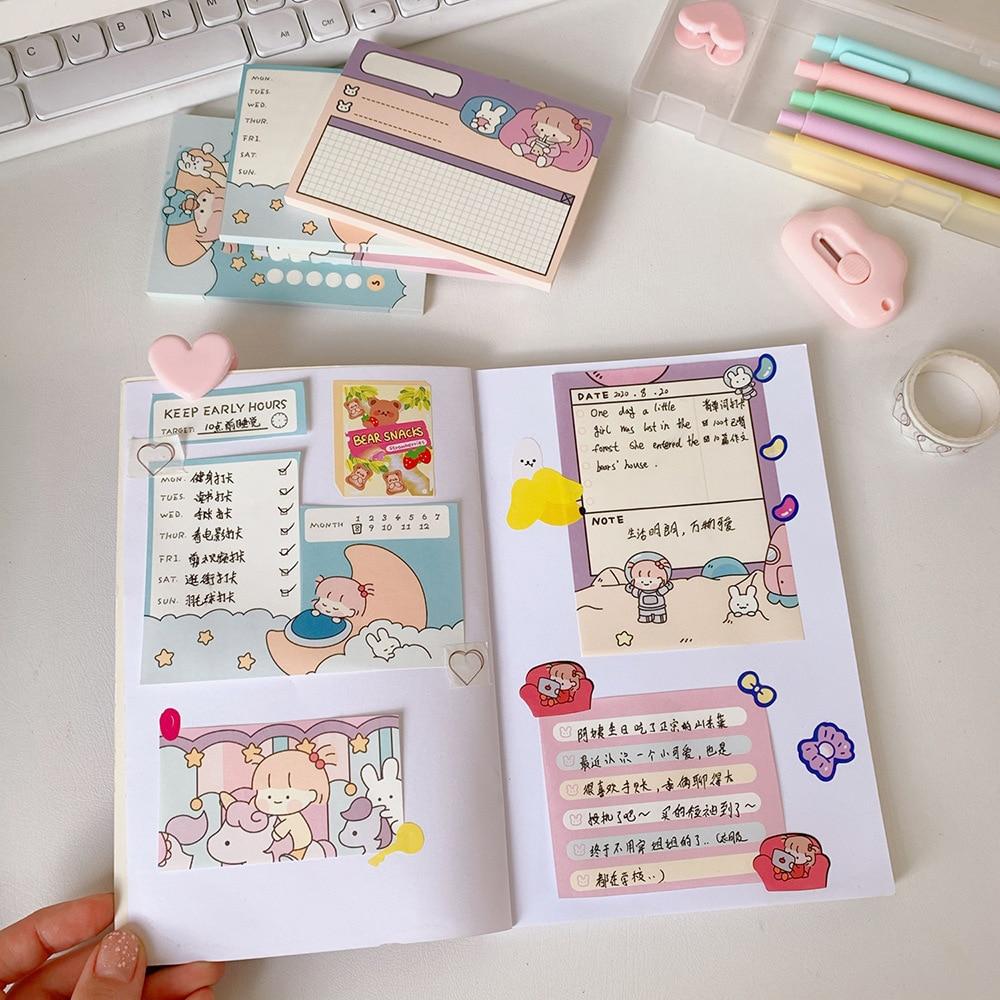 C V B N M
Alt Ctrl
MON.
TUES.
WED.
THUR.
FRI.
SAT.
SUN.
S
KEEP EARLY HOURS
TARGET: 10点前睡觉
MON. 健身打卡
TUES. 读书打卡
WED. 打卡
THUR. 看电影打卡
FRI. 剪视频打卡
SAT. 逛街打卡
SUN. 羽毛球打卡
BEAR SNACKS
Strawberries
MONTH 1 2 3 4 5 6 7
8 9 10 11 12
DATE 2020.8.20
One day a little
girl was lost in the
forest She entered the
bears' house.
背单词打卡
100个已背
10篇作文
NOTE
生活明朗，万物可爱
阿姨生日吃了正宗的山东菜
最近认识一个小可爱，也是
很喜欢手账，俩聊得太
投机了吧~ 买的短袖到了~
终于不用穿姐姐的了..(衣服
都在学校..)